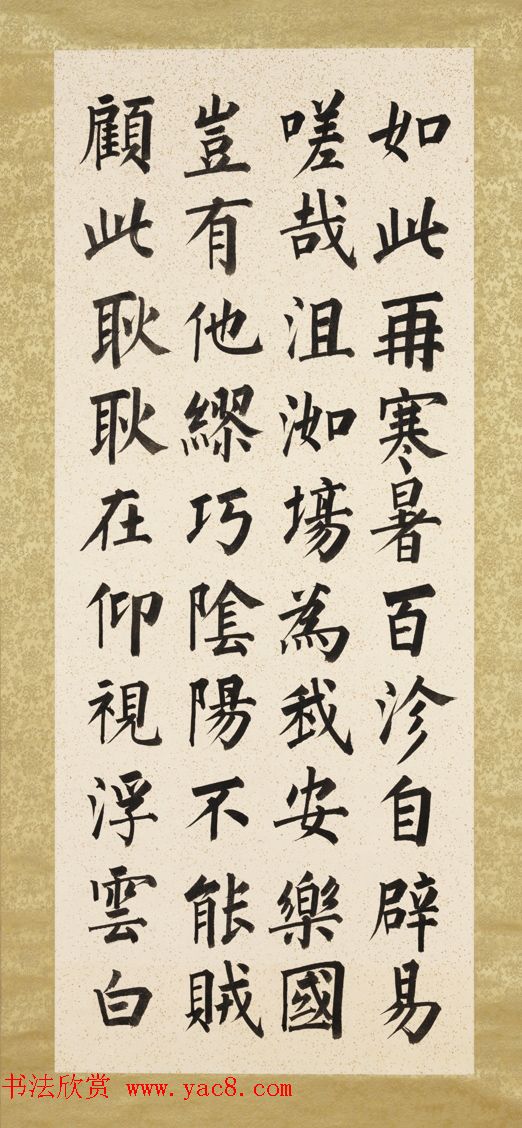 如此再寒暑百沴自辟易
嗟哉沮洳場為我安樂國
豈有他繆巧陰陽不能賊
顧此耿耿在仰視浮雲白
书法欣赏 www.yac8.com